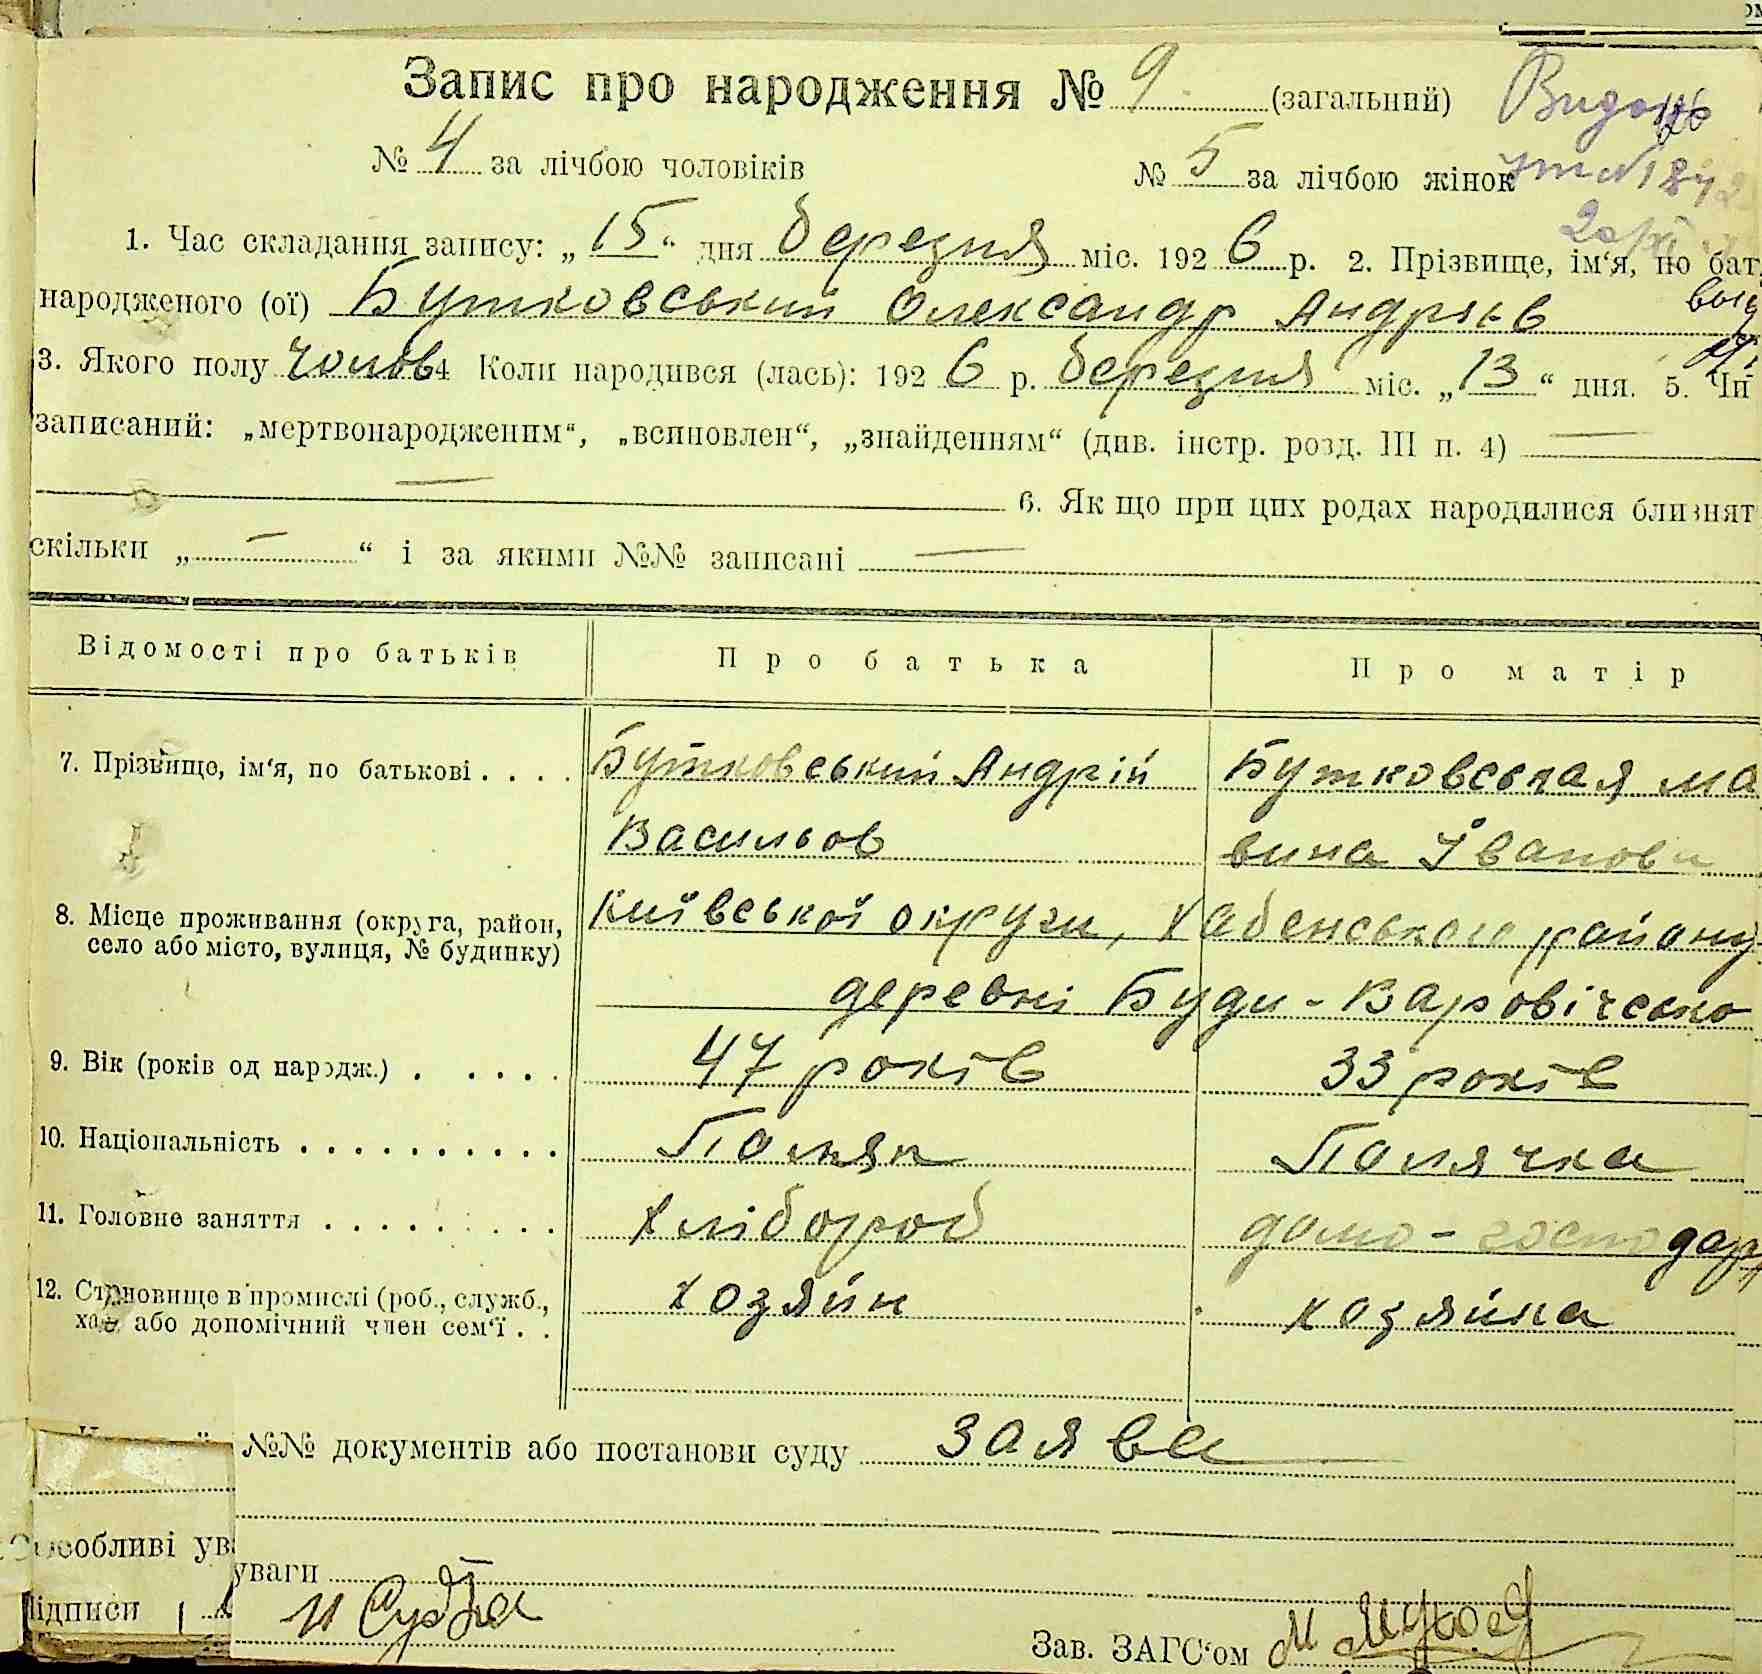 Запис про народження № 9 (загальний)
№ 4 за лічбою чоловіків № 5 за лічбою жінок
1. Час складання запису: „15“ дня березня міс. 1926 р. 2. Прізвище, ім‘я, по бат
народженого (ої) Бутковський Олександр Андрієв
3. Якого полу чолов 4 Коли народився (лась): 1926 р. березня міс. „13“ дня. 5. Чи
записаний: „мертвонародженим“, „всиновлен“, „знайденням“ (див. інстр. розд. III п. 4) —
— 6. Як що при цих родах народилися близнят
скільки „ — “ і за якими №№ записані —
Відомості про батьків Про батька Про матір
7. Прізвище, ім‘я, по батькові . . . . Бутковський Андрій Бутковськая Ма
Васильов вина Іванови
8. Місце проживання (округа, район, Київської округи, Хабенського району
село або місто, вулиця, № будинку)
деревні Буди-Варовічсько
9. Вік (років од народж.) . . . . . 47 років 33 років
10. Національність . . . . . . . . . . Поляк Полячка
11. Головне заняття . . . . . . . . . Хлібороб домо-господар
12. Становище в промислі (роб., служб., хозяйн хозяйка
або допомічний член сем‘ї . .
№№ документів або постанови суду заява
Особливі ув
уваги
Підписи
Зав. ЗАГС‘ом